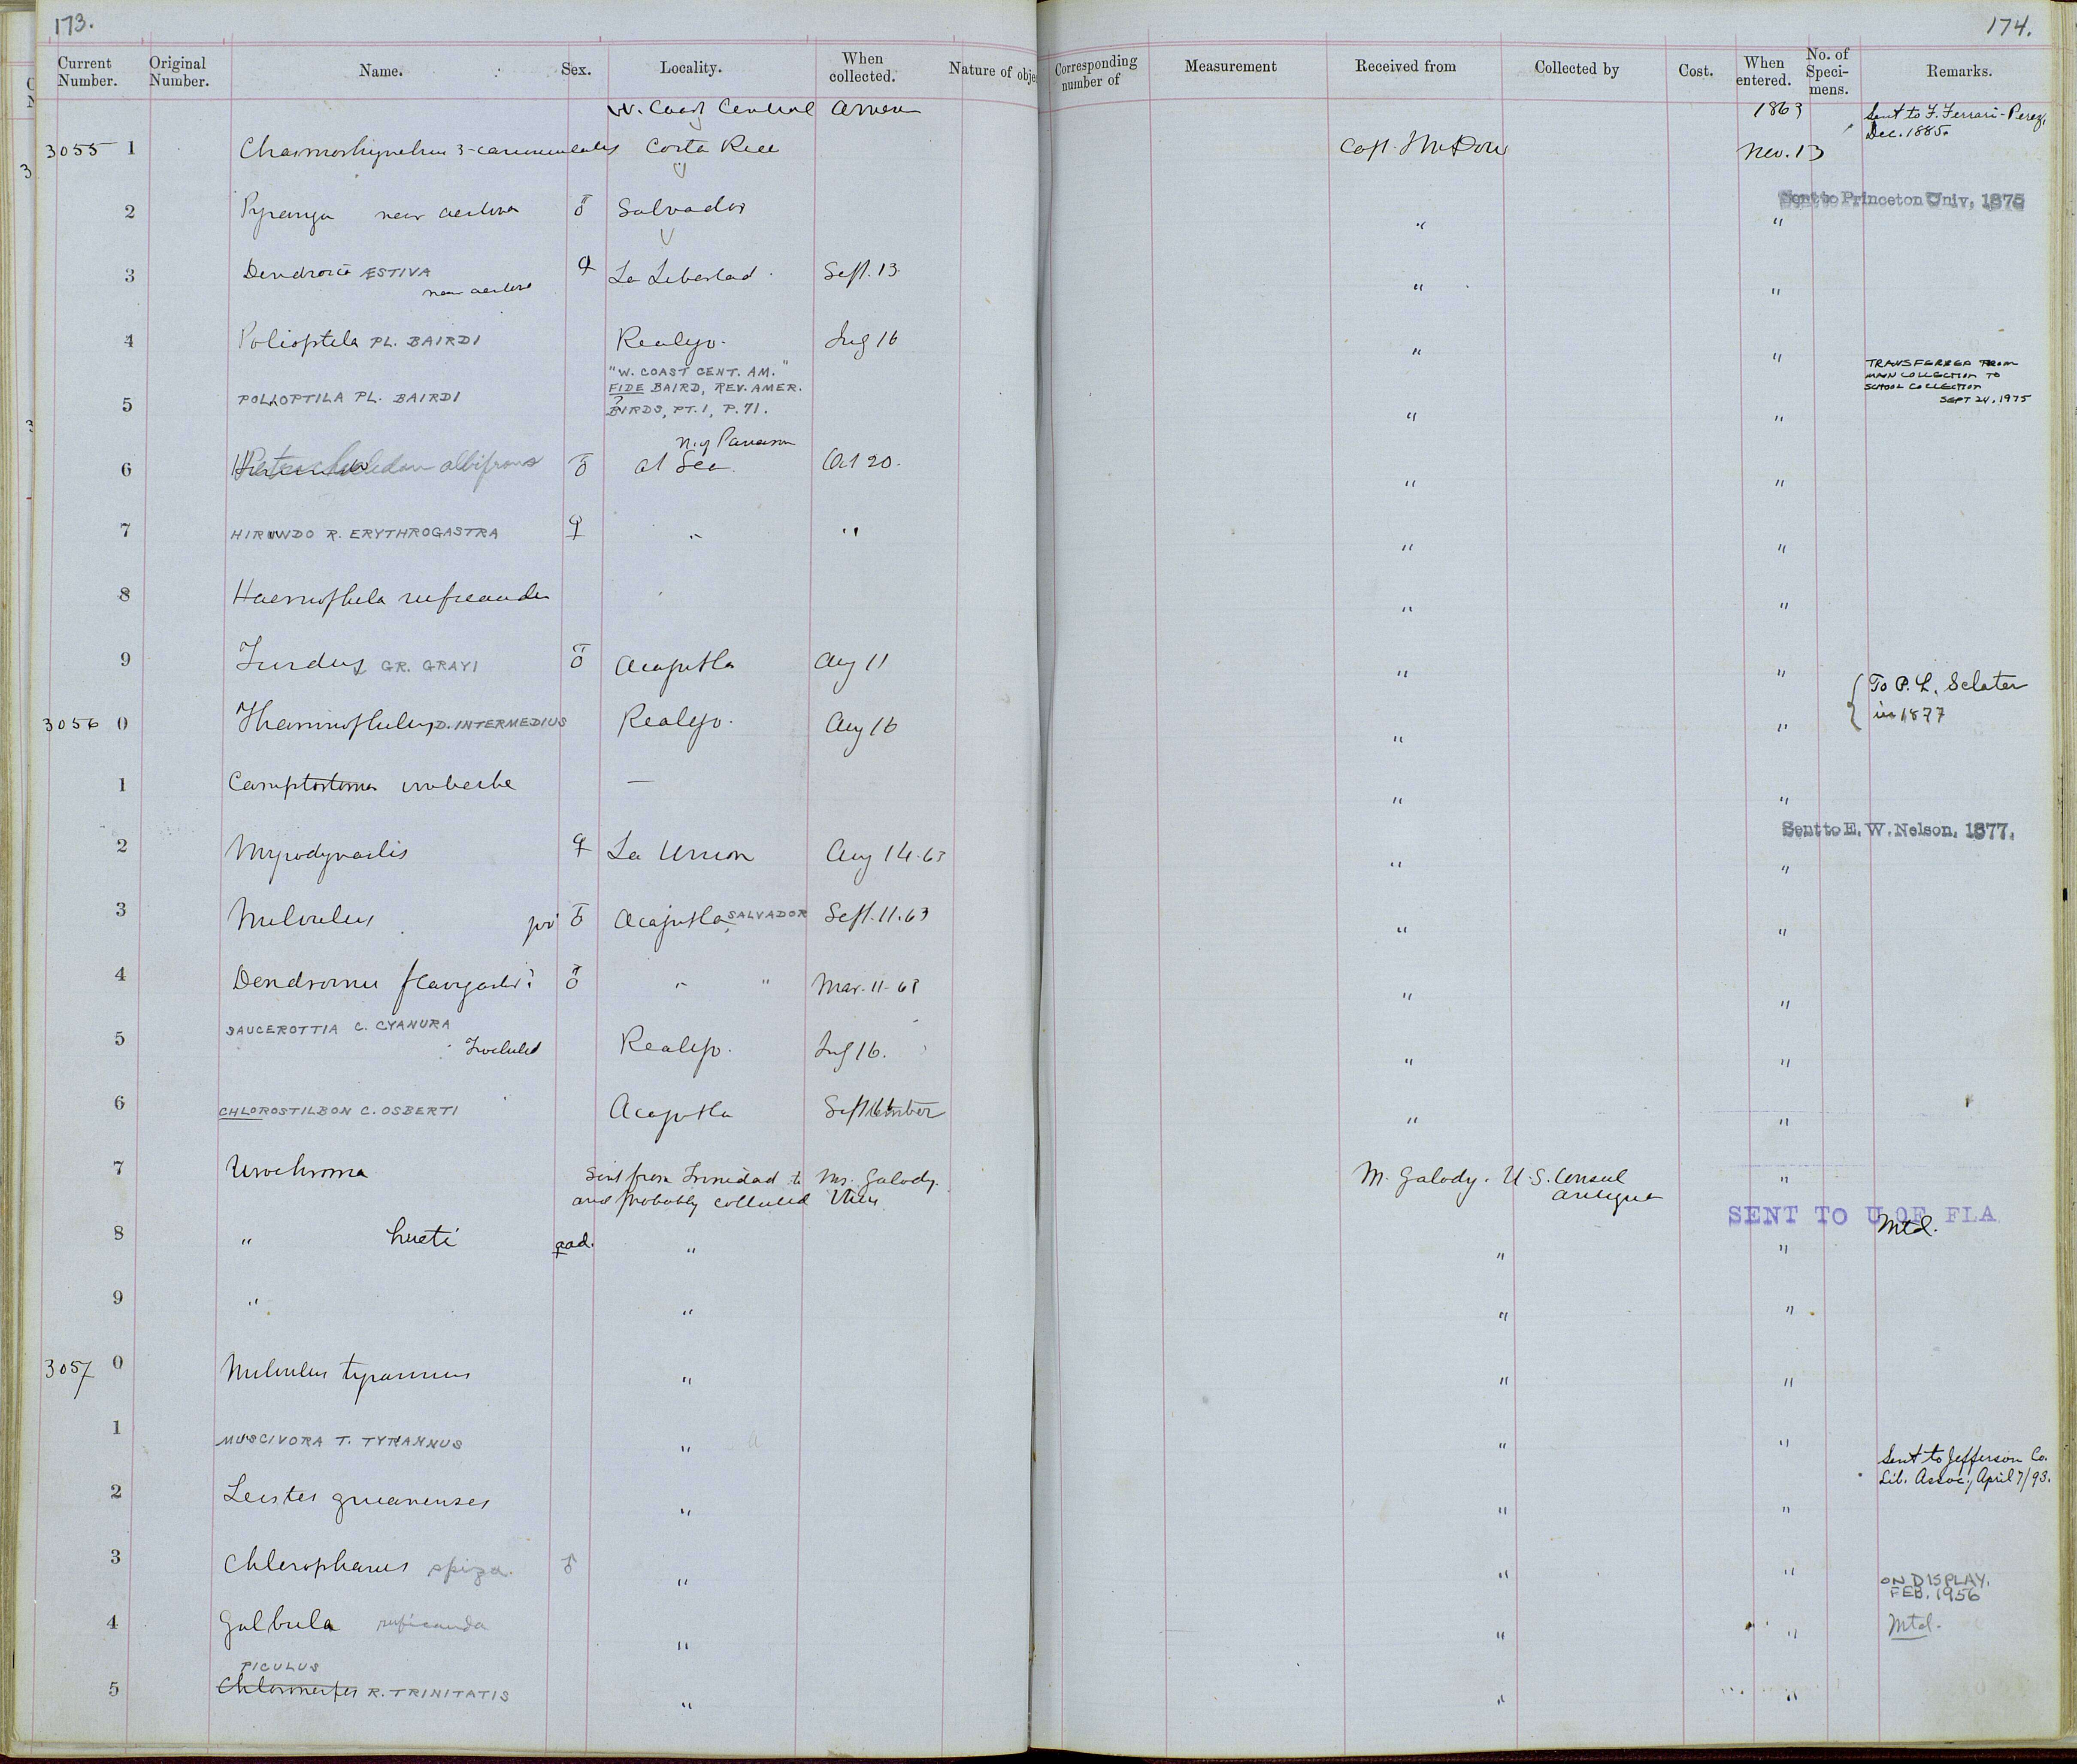 173.
174.
Current Number. Original Number. Name. Sex. Locality. When collected. Nature of obje Corresponding number of Measurement Received from Collected by Cost. When entered. No. of Speci-mens. Remarks.
W. Coast Central America 1863 Sent to F. Ferrari-Perez,
Dec. 1885.
3055 1 Chasmorhynchus 3-carunculatus Costa Rica Capt. Nov. 13
Sent to Princeton Univ, 1875
2 Pyranga near aestiva ♂ Salvador " "
3 Dendroica ÆSTIVA ♀ La Libertad Sept. 13 " "
near aestiva
4 Polioptila PL. BAIRDI Realejo. Aug 16 " "
"W. COAST CENT. AM."
TRANSFERRED FROM
MAIN COLLECTION TO
SCHOOL COLLECTION
SEPT 24, 1975
5 POLIOPTILA PL. BAIRDI FIDE BAIRD, REV. AMER. " "
? BIRDS, PT. 1, P. 71.
N. of Panama
6 albifrons ♂ at Sea. Oct 20. " "
7 HIRUNDO R. ERYTHROGASTRA ♀ " " " "
8 Haemophila ruficauda " "
9 Turdus GR. GRAYI ♂ Acajutla Aug 11 " "
To P. L. Sclater
in 1877
3056 0 Thamnophilus D. INTERMEDIUS Realejo. Aug 16 " "
1 Camptostoma imberbe — " "
Sent to E. W. Nelson, 1877.
2 Myiodynastes ♀ La Union Aug 14.63 " "
3 Milvulus juv ♂ Acajutla, SALVADOR Sept. 11.63 " "
4 Dendromus ♂ " " Mar. 11-63 " "
5 SAUCEROTTIA C. CYANURA Realejo. Aug 16. " "
Trochilid
6 CHLOROSTILBON C. OSBERTI Acajutla September " "
7 Urochroma Sent from Trinidad to Mr. Galody. M. Galody. U.S. Consul "
and probably collected there Antigua
SENT TO U OF FLA
8 " hueti ♀ad. " " " Mtd.
9 " " " "
3057 0 Milvulus tyrannus " " "
1 MUSCIVORA T. TYRANNUS " " "
Sent to Jefferson Co.
Lib. Assoc., April 7/93.
2 Leistes guianensis " " "
3 Chlorophanes spiza. ♂ " " "
ON DISPLAY.
FEB. 1956
4 Galbula ruficauda " " " Mtd.
PICULUS
5 Chloronerpes R. TRINITATIS " " "